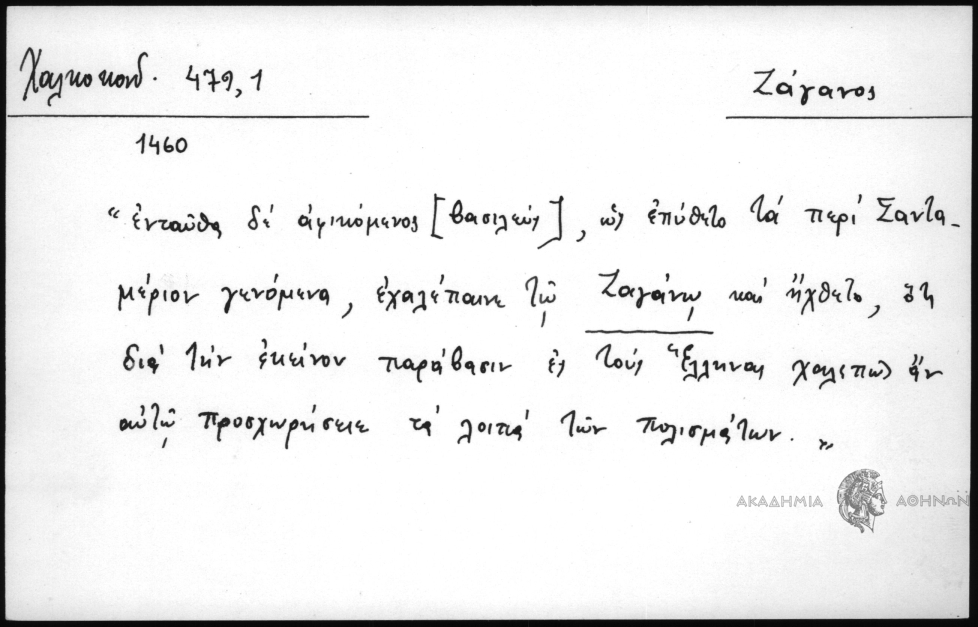 Χαλκοκονδ. 479,1
Ζάγανος
1460
“ἐνταῦθα δέ ἀφικόμενος [βασιλεύς], ὡς ἐπύθετο τά περί Σαντα-
μέριον γενόμενα, ἐχαλέπαινε τῷ Ζαγάνῳ καί ἤχθετο, ὅτι
διά τήν ἐκείνου παράβασιν ἐς τούς Ἕλληνας χαλεπῶς ἄν
αὐτῷ προσχωρήσειε τά λοιπά τῶν πολισμάτων.„
ΑΚΑΔΗΜΙΑ ΑΘΗΝΩΝ